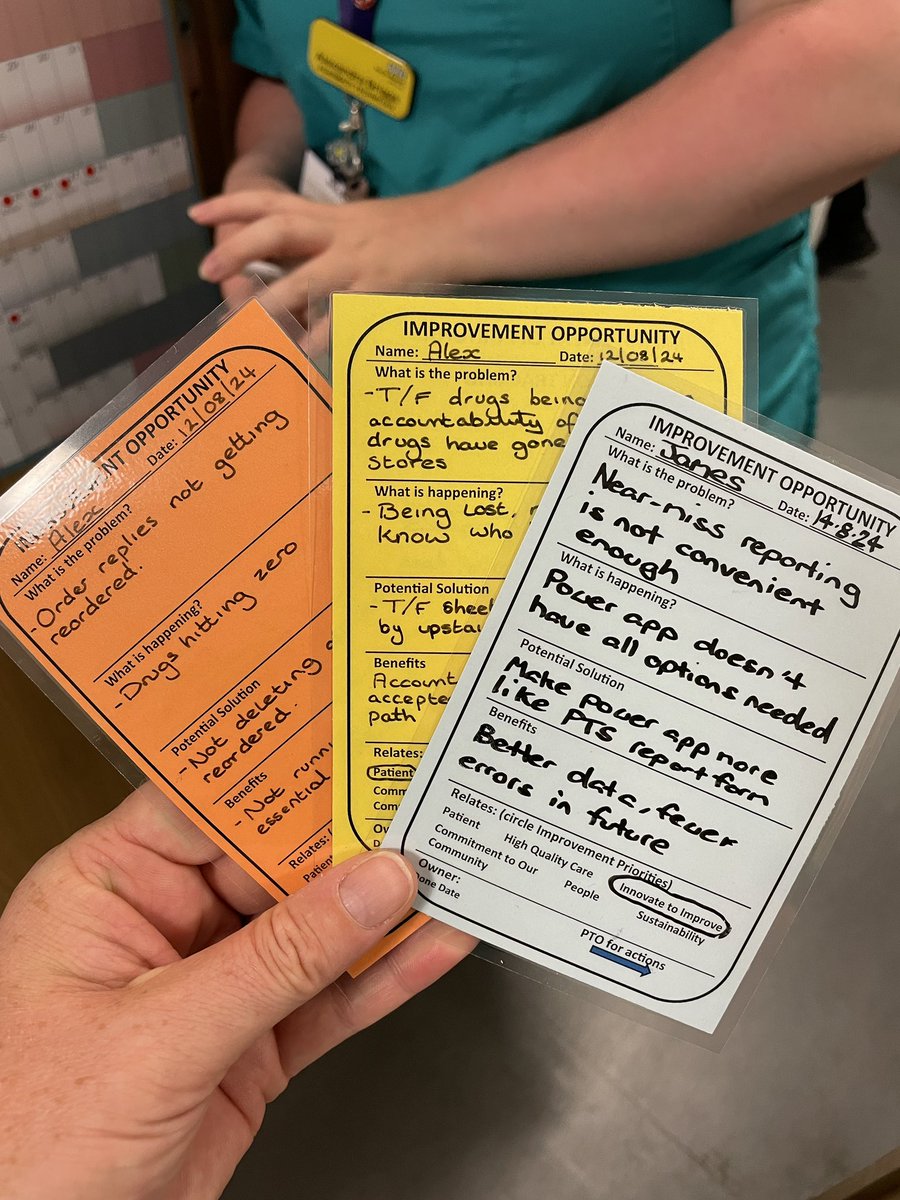 IMPROVEMENT OPPORTUNITY
Name: Alex
Date: 12/08/24
What is the problem?
- Order replies not getting
reordered.
What is happening?
- Drugs hitting zero
Potential Solution
- Not deleting
reordered.
Benefits
- Not
essential
Relates: (
Patient
IMPROVEMENT OPPORTUNITY
Name: Alex Date: 12/08/24
What is the problem?
- T/F drugs being
accountability of
drugs have gone
Stores
What is happening?
- Being Lost,
know who
Potential Solution
- T/F sheet
by
Benefits
Account
accepte
path
Relates:
Patient
Comm
Com
IMPROVEMENT OPPORTUNITY
Name: James Date: 14.8.24
What is the problem?
Near-miss reporting
is not convenient
enough
What is happening?
Power app doesn't
have all options needed
Potential Solution
Make power app more
like PTS report form
Benefits
Better data, fewer
errors in future
Relates: (circle Improvement Priorities)
Patient High Quality Care Innovate to Improve
Commitment to Our People Sustainability
Community
Owner:
one Date
PTO for actions